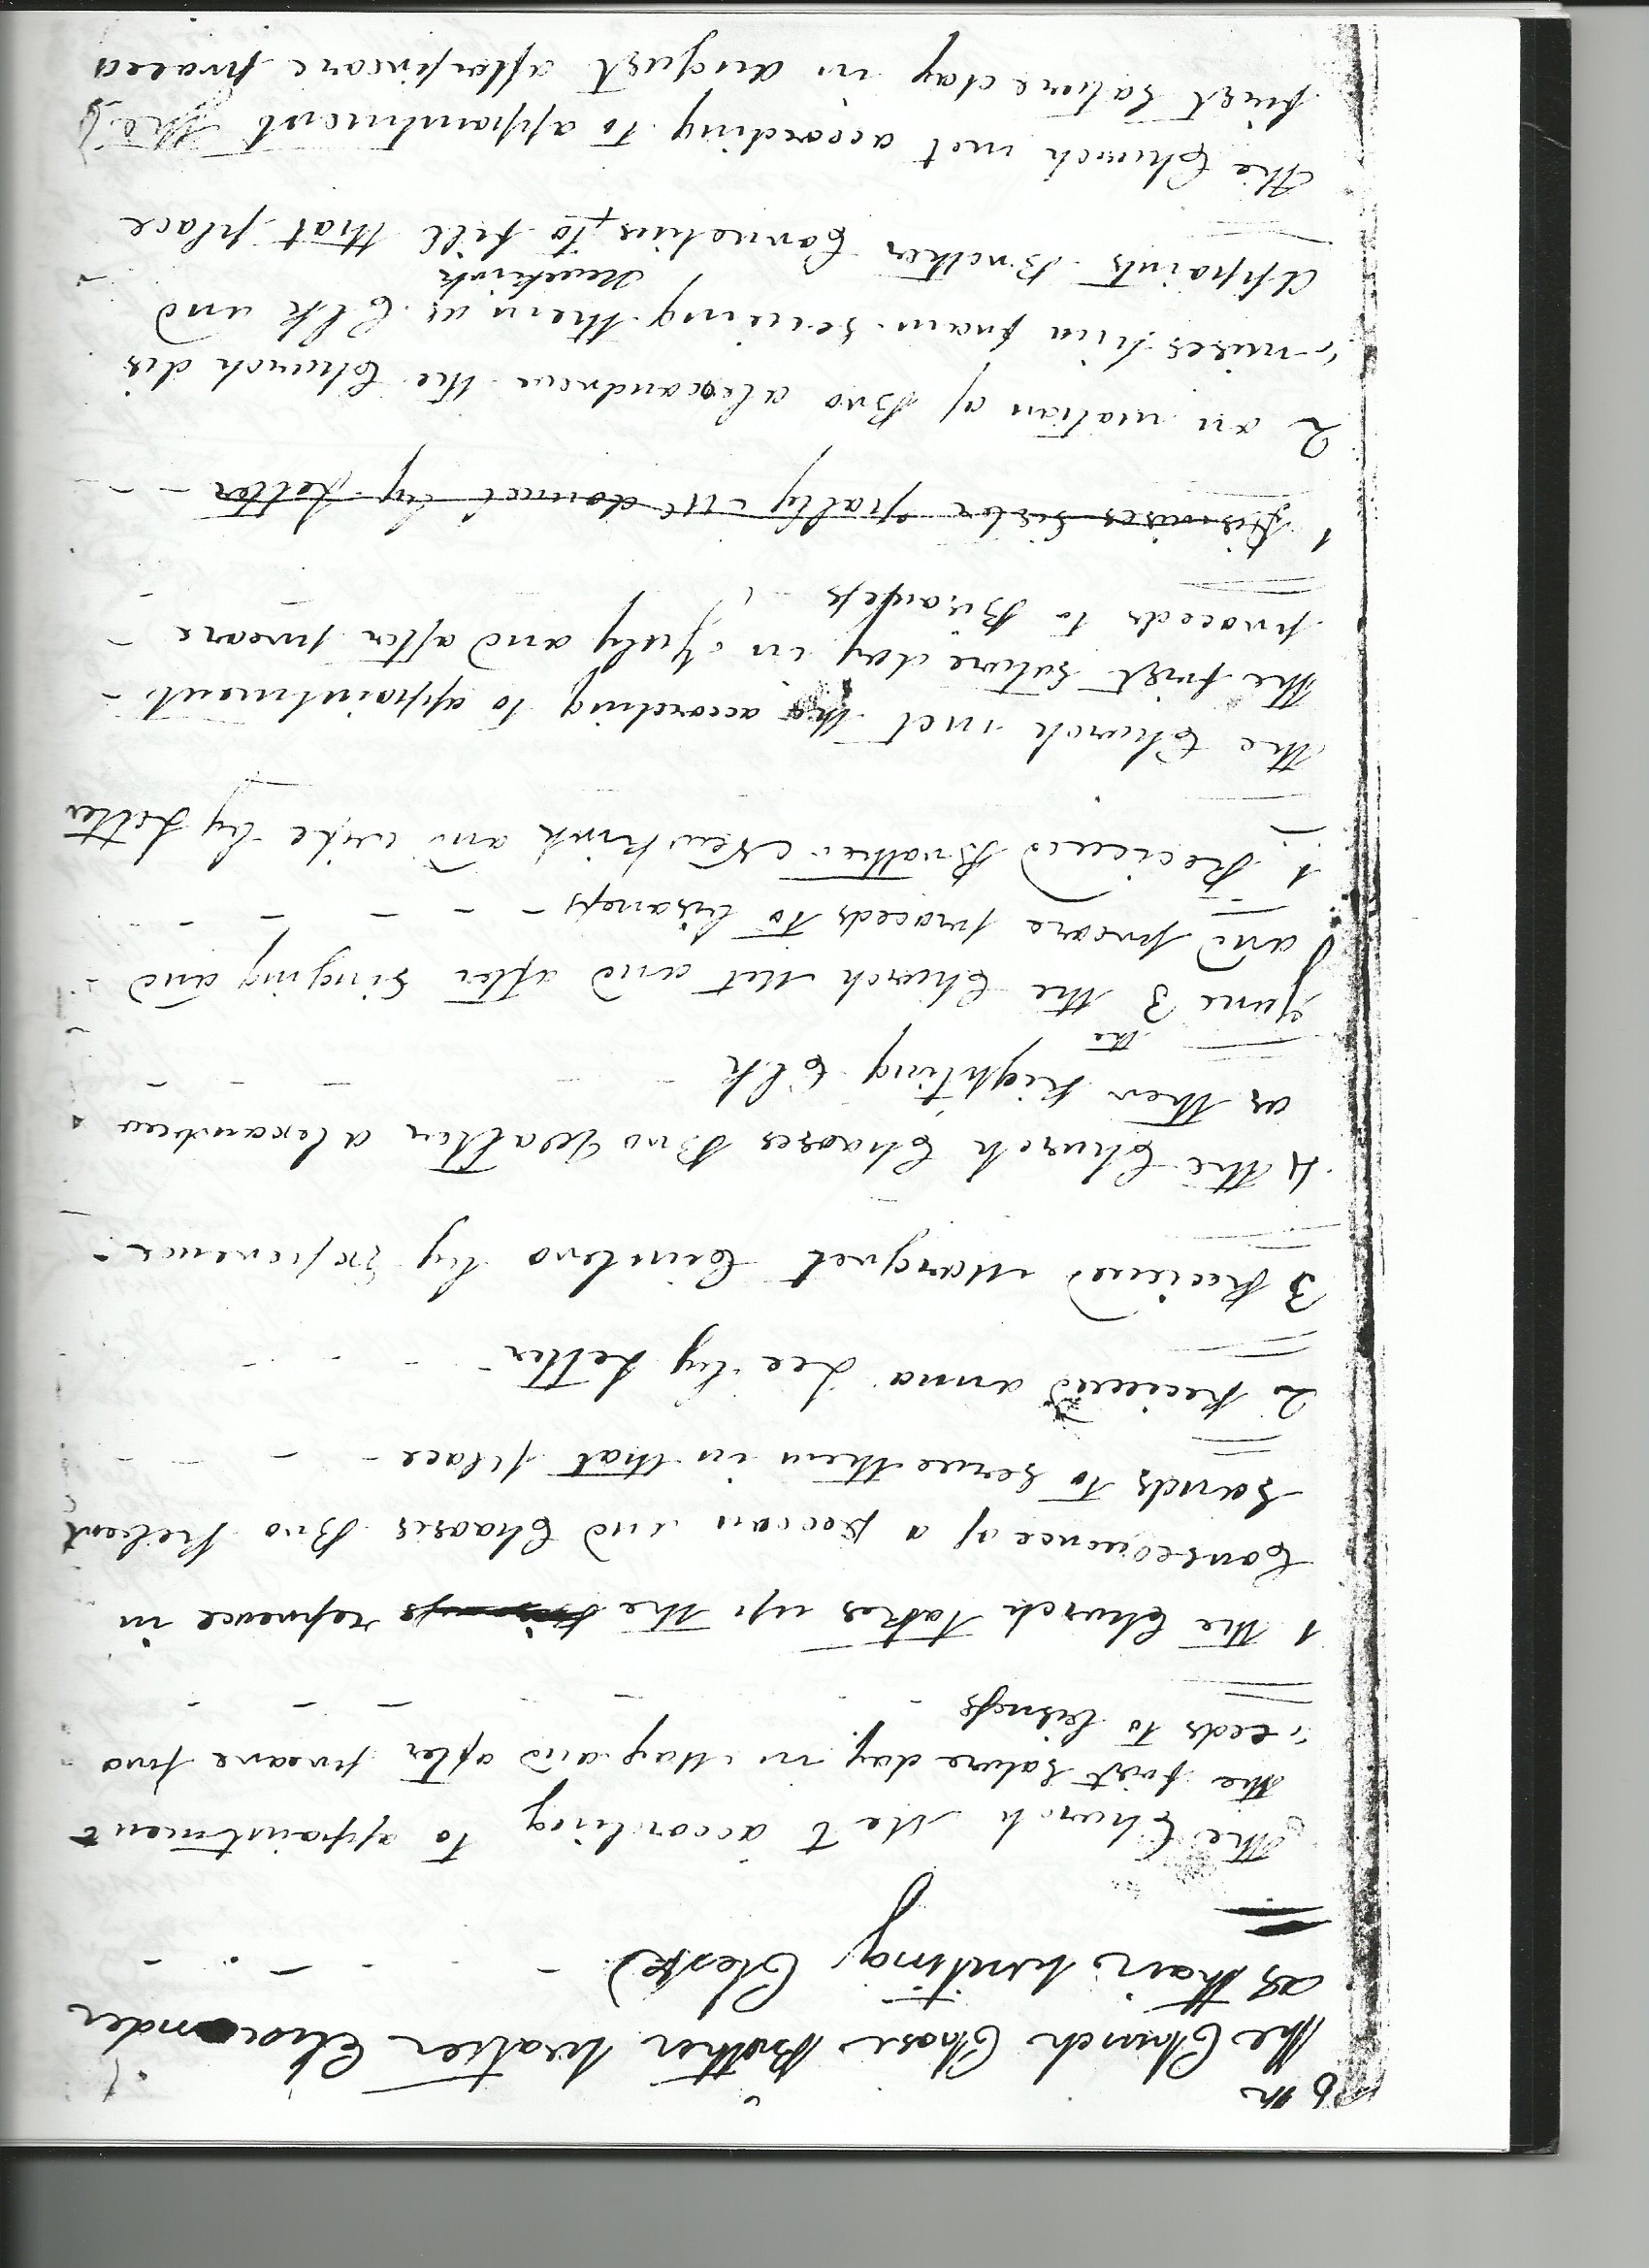 6 th
the Church Chose Brother Walter Elexander
as thair writing Clerk
the Church Met according to appaintment
the first Satureday in May and after preare pro
"ceeds to bisness
1 the Church takes up the refrence in
Consequence of a and Chooses Bro
Sands to serve them in that place
2 Recieved anna Lee by Letter
3 Recieved Margret by Experience
4 the Church Chooses Bro Walter alexandrew
as ther Righting Clk
the
June 3 the Church Met and after Singing and
and preare proceeds to bisaness
1 Recieved Brother Newkirk and wife by Letter
the Church met the according to appaintment
the first Satureday in July and after preare
proceeds to Bisaness
1 Dismises Sister Polly Mcdonnel by Letter
2 on motian of Bro alexandrew the Church dis
"mises him fram serving them as Clk and
Newkirk
Appaints Brother Cornelius to fill that place
the Church met according to appaintment the
first Satureday in August after preare proceed